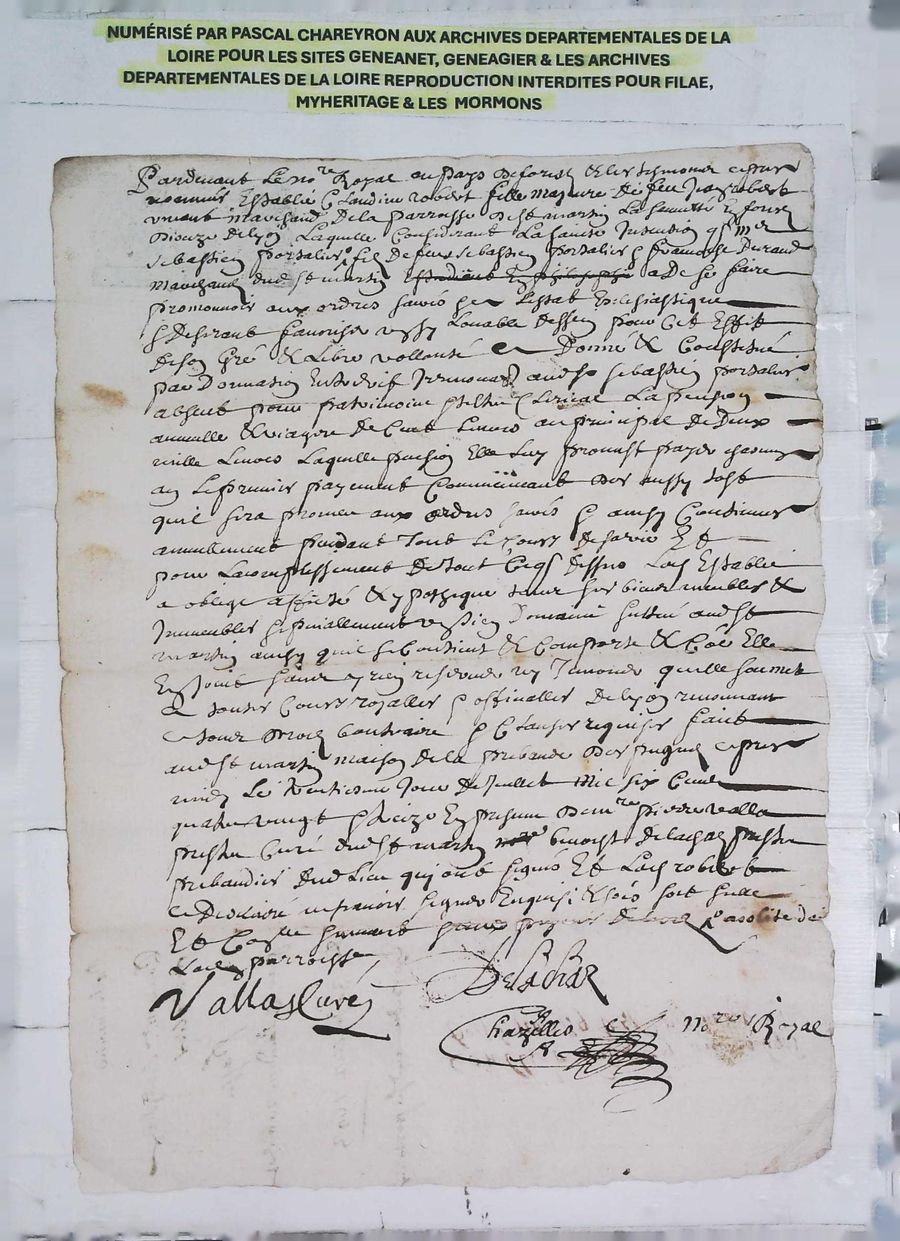 NUMÉRISÉ PAR PASCAL CHAREYRON AUX ARCHIVES DEPARTEMENTALES DE LA
LOIRE POUR LES SITES GENEANET, GENEAGIER & LES ARCHIVES
DEPARTEMENTALES DE LA LOIRE REPRODUCTION INTERDITES POUR FILAE,
MYHERITAGE & LES MORMONS
Pardevant Le no.re Royal au pays de forest & les tesmoins apres
nommes Establie Claudine robert fille majeure de feu Jean robert
vivant marchand de la parroisse de st martin
diocese de lyon Laquelle Considerant La sainte Intention q
sebastien portalier fils de feu sebastien portalier & francoise Durand
marchand dud st martin a de se faire
promouvoir aux ordres sacrés & Lestat Eclesiastique
& desirant favoriser Louable dessein pour Cet Effet
de son Gré & Libre vollonté a Donné & Constitué
par Donnation Entrevif aud sr sebastien portalier
absent pour patrimoine & tiltre Clerical La pension
annuelle & viagere de Cent Livres au principal de Deux
mille Livres Laquelle pension Elle Luy promet payer chascun
an Le premier payement Commencant des aussy tost
quil sera promeu aux ordres sacrés & ainsy Continuer
annuellement pendant tout Le Cours de sa vie Et
pour Lacomplissement de tout Ce dessus Lad Establie
a obligé affecté & ypothequé tous ses biens meubles &
Immeubles & speciallement Domaine situé aud st
martin ainsy quil se Contient & Comporte & que Elle
En Jouit sans y rien reserver quelle soumet
a toutes Cours royalles & officialles de lyon renonçant
a tous droits Contraire & Clauses requises fait
aud st martin maison de la prebande apres
midy Le Jour de Juillet mil six Cent
quatre vingt & treize En presence de m.re pierre valla
prestre Curé dud st martin benoist delachal prestre
prebandier dud Lieu qui ont signés Et Lad robert
a declaré ne scavoir signer Enquise & soit
Et
Lad parroisse
Vallas Curé
Delachal
Chazelles no.re Royal